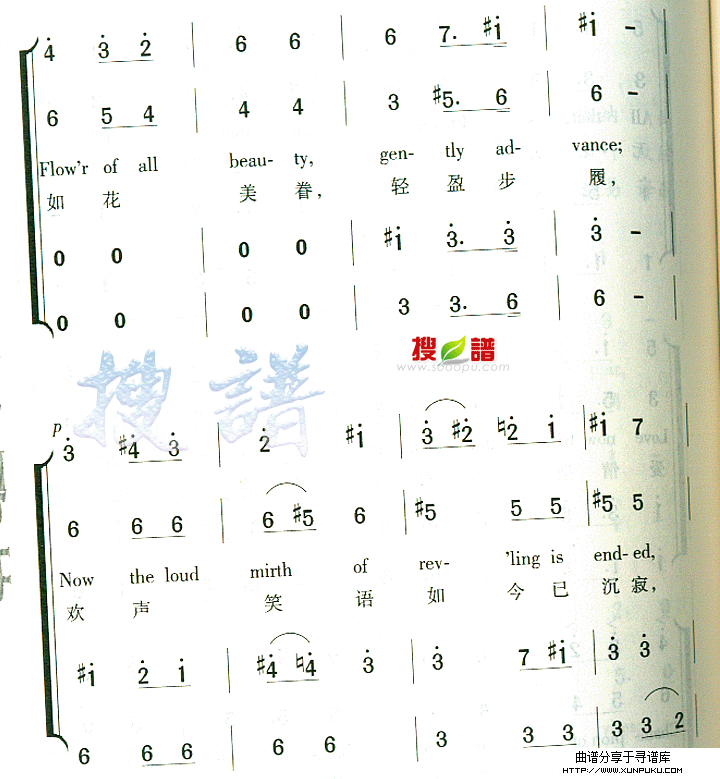 4̇ 3̇ 2̇ | 6 6 | 6 7. #i̇ | #i̇ - |
6 5 4 | 4 4 | 3 #5. 6 | 6 - |
Flow'r of all beau- ty, gen- tly ad- vance;
如 花 美 眷, 轻 盈 步 履,
0 0 | 0 0 | #i̇ 3̇. 3̇ | 3̇ - |
0 0 | 0 0 | 3 3. 6 | 6 - |
搜谱
www.sooopu.com
搜谱
p
3̇ #4̇ 3̇ | 2̇ #i̇ | 3̇ #2̇ ♮2̇ i̇ | #i̇ 7
6 6 6 | 6 #5 6 | #5 5 5 | #5 5
Now the loud mirth of rev- 'ling is end-ed,
欢 声 笑 语 如 今 已 沉 寂,
#i̇ 2̇ i̇ | #4̇ ♮4̇ 3̇ | 3̇ 7 #i̇ | 3̇ 3̇
6 6 6 | 6 6 | 3 3 3 | 3 3 2
曲谱分享于寻谱库
HTTP://WWW.XUNPUKU.COM